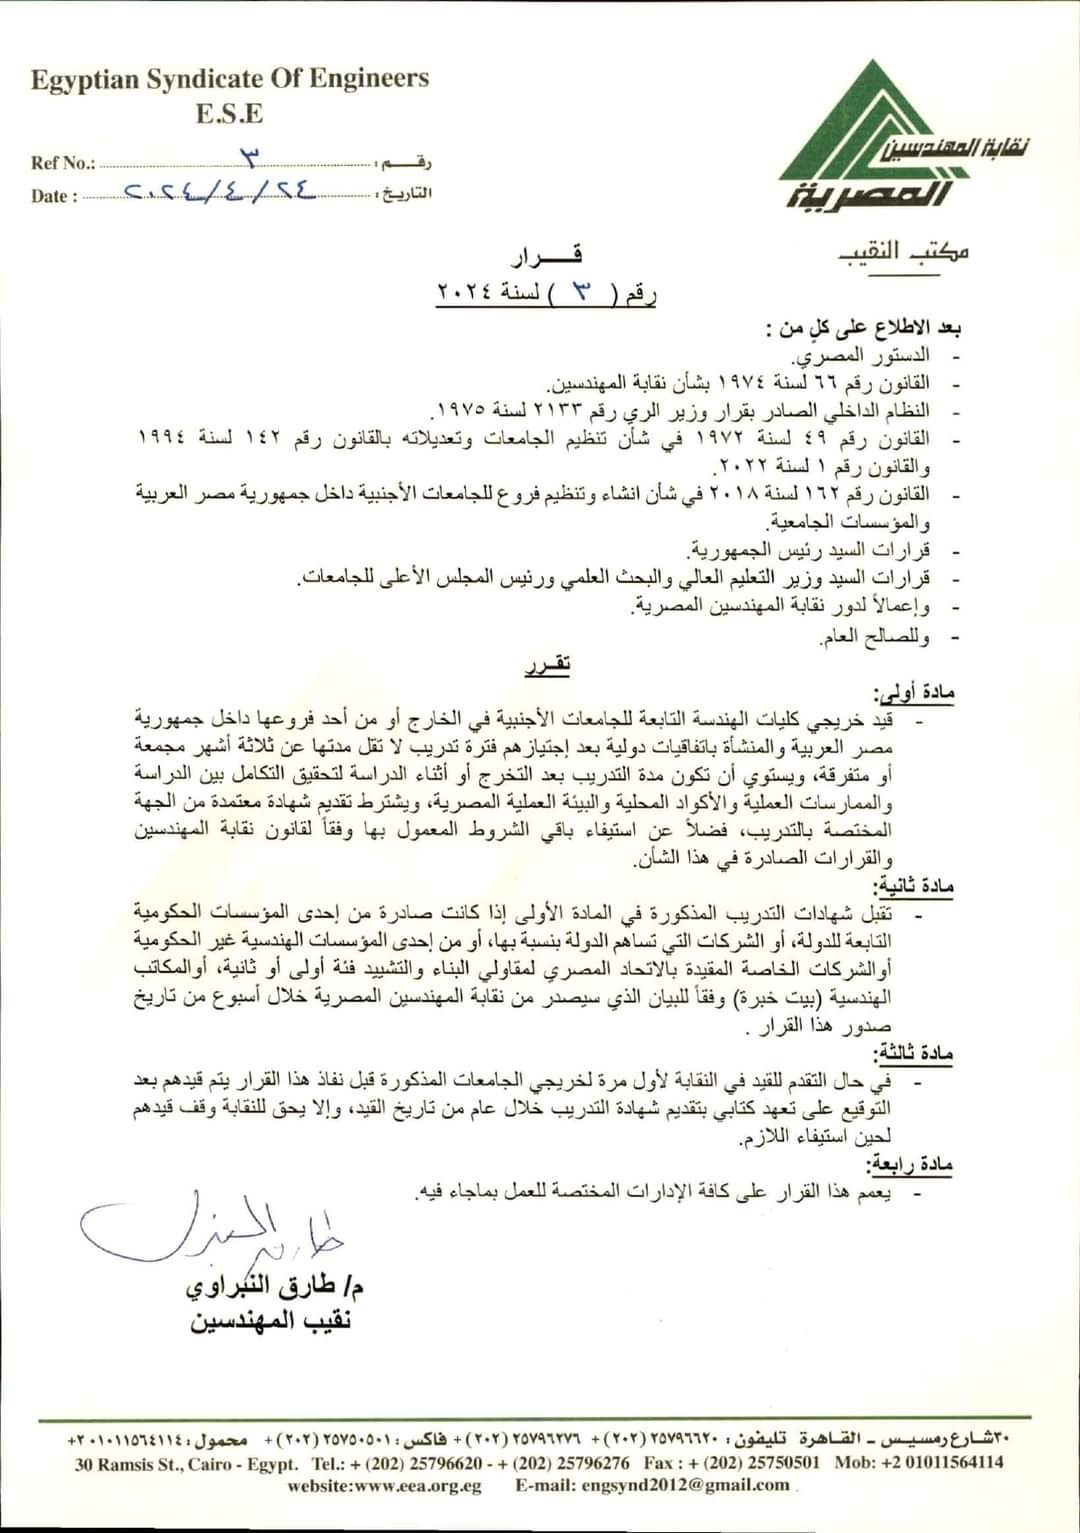 Egyptian Syndicate Of Engineers
E.S.E
Ref No.: ٣ رقـــم :
Date : ٢٠٢٤/٤/٢٤ التاريخ :
نقابة المهندسين
المصرية
مكتب النقيب
قـــرار
رقم ( ٣ ) لسنة ٢٠٢٤
بعد الاطلاع على كلٍ من :
- الدستور المصري.
- القانون رقم ٦٦ لسنة ١٩٧٤ بشأن نقابة المهندسين.
- النظام الداخلي الصادر بقرار وزير الري رقم ٢١٣٣ لسنة ١٩٧٥.
- القانون رقم ٤٩ لسنة ١٩٧٢ في شأن تنظيم الجامعات وتعديلاته بالقانون رقم ١٤٢ لسنة ١٩٩٤
والقانون رقم ١ لسنة ٢٠٢٢.
- القانون رقم ١٦٢ لسنة ٢٠١٨ في شأن انشاء وتنظيم فروع للجامعات الأجنبية داخل جمهورية مصر العربية
والمؤسسات الجامعية.
- قرارات السيد رئيس الجمهورية.
- قرارات السيد وزير التعليم العالي والبحث العلمي ورئيس المجلس الأعلى للجامعات.
- وإعمالاً لدور نقابة المهندسين المصرية.
- وللصالح العام.
تقـرر
مادة أولى:
- قيد خريجي كليات الهندسة التابعة للجامعات الأجنبية في الخارج أو من أحد فروعها داخل جمهورية
مصر العربية والمنشأة باتفاقيات دولية بعد إجتيازهم فترة تدريب لا تقل مدتها عن ثلاثة أشهر مجمعة
أو متفرقة، ويستوي أن تكون مدة التدريب بعد التخرج أو أثناء الدراسة لتحقيق التكامل بين الدراسة
والممارسات العملية والأكواد المحلية والبيئة العملية المصرية، ويشترط تقديم شهادة معتمدة من الجهة
المختصة بالتدريب، فضلاً عن استيفاء باقي الشروط المعمول بها وفقاً لقانون نقابة المهندسين
والقرارات الصادرة في هذا الشأن.
مادة ثانية:
- تقبل شهادات التدريب المذكورة في المادة الأولى إذا كانت صادرة من إحدى المؤسسات الحكومية
التابعة للدولة، أو الشركات التي تساهم الدولة بنسبة بها، أو من إحدى المؤسسات الهندسية غير الحكومية
أوالشركات الخاصة المقيدة بالاتحاد المصري لمقاولي البناء والتشييد فئة أولى أو ثانية، أوالمكاتب
الهندسية (بيت خبرة) وفقاً للبيان الذي سيصدر من نقابة المهندسين المصرية خلال أسبوع من تاريخ
صدور هذا القرار .
مادة ثالثة:
- في حال التقدم للقيد في النقابة لأول مرة لخريجي الجامعات المذكورة قبل نفاذ هذا القرار يتم قيدهم بعد
التوقيع على تعهد كتابي بتقديم شهادة التدريب خلال عام من تاريخ القيد، وإلا يحق للنقابة وقف قيدهم
لحين استيفاء اللازم.
مادة رابعة:
- يعمم هذا القرار على كافة الإدارات المختصة للعمل بماجاء فيه.
م/ طارق النبراوي
نقيب المهندسين
٣٠شارع رمسيس - القاهرة تليفون : ٢٥٧٩٦٦٢٠ (٢٠٢) +‎ ٢٥٧٩٦٢٧٦ (٢٠٢) + فاكس : ٢٥٧٥٠٥٠١ (٢٠٢) + محمول : ٢٠١٠١١٥٦٤١١٤+
30 Ramsis St., Cairo - Egypt. Tel.: + (202) 25796620 - + (202) 25796276 Fax : + (202) 25750501 Mob: +2 01011564114
website:www.eea.org.eg E-mail: engsynd2012@gmail.com